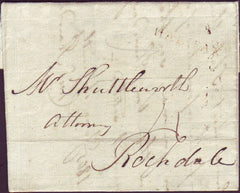 Mr Shuttleworth
Attorney
Rochdale